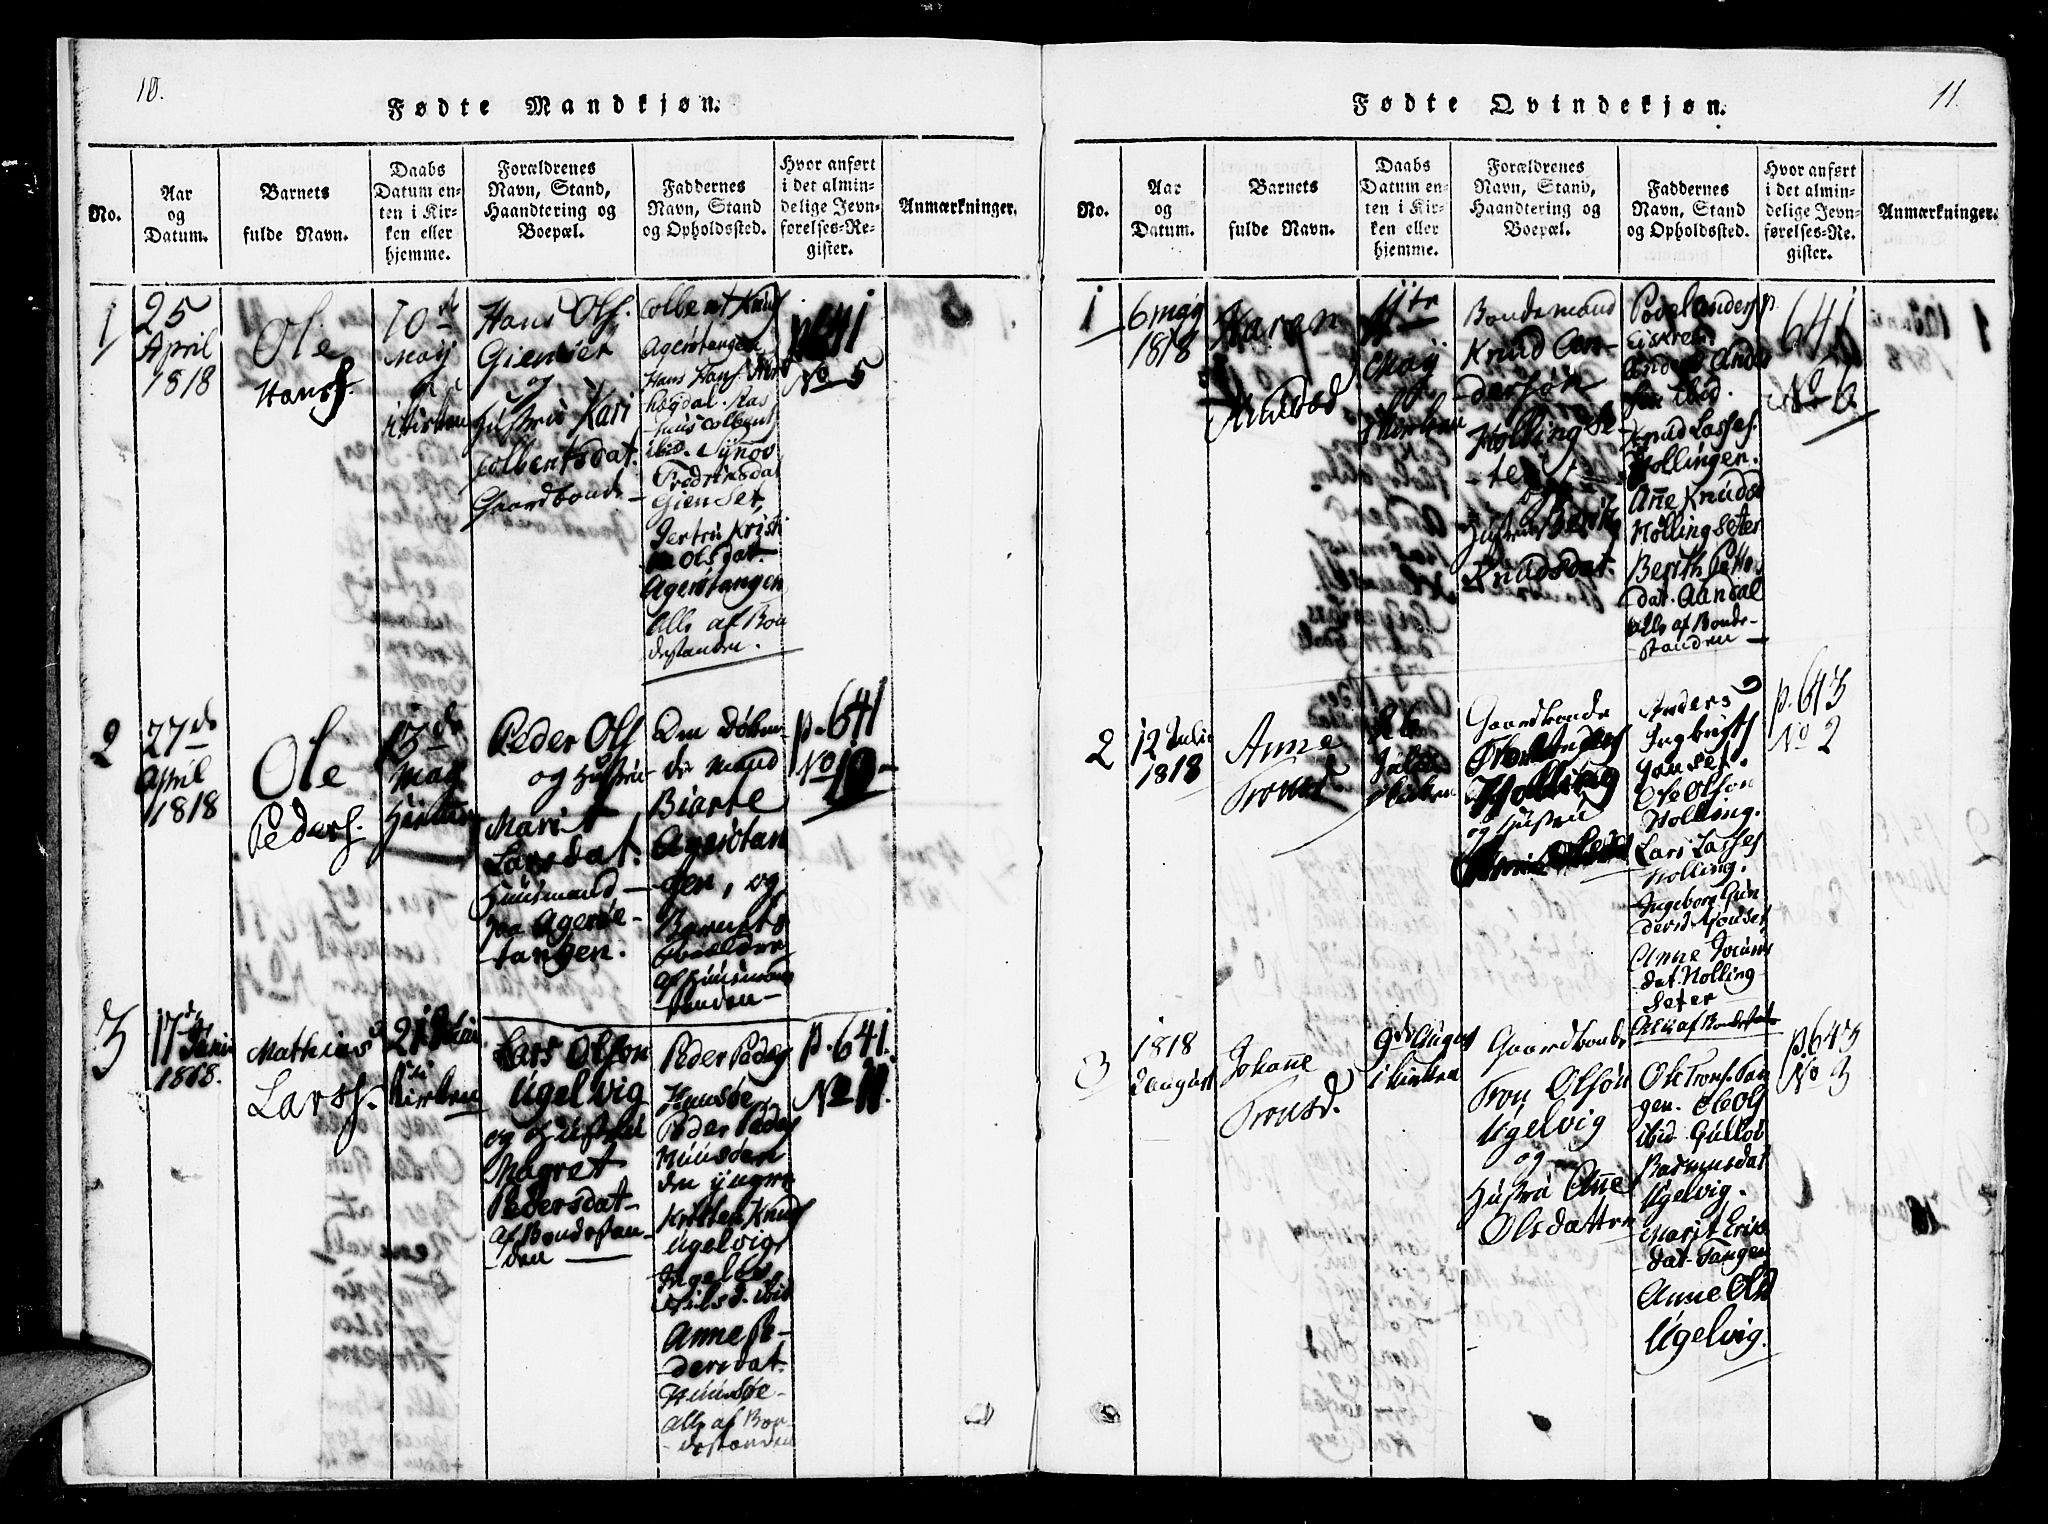 10.
Fødte Mandkjøn.
No.
Aar
og
Datum.
Barnets
fulde Navn.
Daabs
Datum en-
ten i Kir-
ken eller
hjemme.
Forældrenes
Navn, Stand,
Haandtering og
Boepæl.
Faddernes
Navn, Stand
og Opholdssted.
Hvor anført
i det almin-
delige Jevn-
førelses-Re-
gister.
Anmærkninger.
1
25
April
1818
Ole
Hanss.
10de
May
i Kirken
Hans Ols.
Gienset
og
Hustru Kari
Colbentsdat.
Gaardbonde
Colbent Knuds
Agerøtangen
Hans Hans.
ibid. Synøv
Fredriksdat
Gienset,
Jertru Kristi
Olsdat.
Agerøtangen
Alle af Bon
destanden.
p. 641
No 5
2
27de
April
1818
Ole
Peders.
13de
May
Peder Ols
og Hustru
Marit
Larsdat.
Huusmand
paa Agerøe-
tangen.
Den døben-
de Mand
Biarte
Agerøtan
gen, og
Barnets
Forældre
af Huusmands
standen
p. 641
No 10
3
17de Juni
1818.
Mathias
Larss.
21de Juni
i
Kirken
Lars Olsøn
Ugelvig
og Hustru
Magret
Pedersdat
af Bondestan-
den
Peder Peders
Huusøe,
Peder Peders
Huusøen
den yngre
Kristen Knuds
Ugelvig,
Ingelev
Nilsd. ibid
Anne Pe-
dersdat.
Huusøe
Alle af Bon-
destanden
p. 641.
No 11.
11.
Fødte Qvindekjøn.
No.
Aar
og
Datum.
Barnets
fulde Navn.
Daabs
Datum en-
ten i Kir-
ken eller
hjemme.
Forældrenes
Navn, Stand,
Haandtering og
Boepæl.
Faddernes
Navn, Stand
og Opholdssted.
Hvor anført
i det almin-
delige Jevn-
førelses-Re-
gister.
Anmærkninger.
1
6 may
1818
Karen
Knudsd
11te
May
i Kirken
Bondemand
Knud An-
dersøn
Holling Se-
ter
og
Hustru Berith
Knudsdat.
Povel Anders
Eiskrem.
Anders Anders
søn ibid.
Knud Lasses.
Hollingen.
Anne Knudsd
Holling Seter
Berith Petters
dat. Aandal
alle af Bonde-
standen
p.
641
No 6
2
12 Julii
1818
Anne
Tronsd
Julii
i Kirken
Gaardbonde
Holling
og Hustru
Anders
Ingbrigts
Janset.
Ole Olsøn
Holling.
Lars Lasses
Holling.
Ingeborg Gun
dersd. Janset
Anne Iversd
dat. Holling
seter
Alle af Bondestand
p. 643
No 2
3
1818
2 august
Johanne
Tronsd.
9de August
i Kirken
Gaardbonde
Tron Olsøn
Ugelvig
og
Hustru Anne
Olsdatter
Ole Trons. Tan
gen. Ole Ols
ibid Gulløv
Rasmusdat
Ugelvig.
Marit Erics
dat. Tangen
Anne Olsd
Ugelvig.
p. 643
No 3